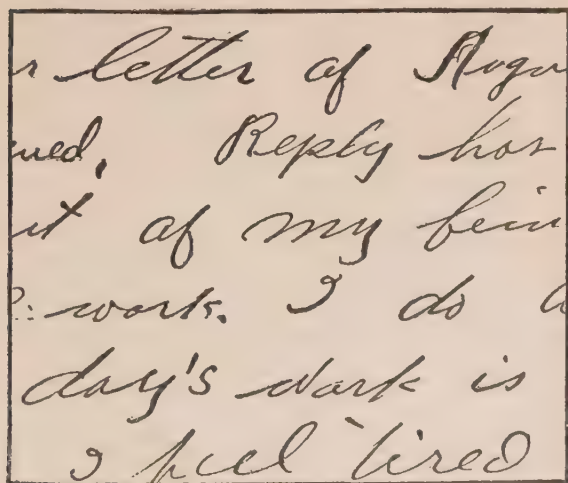 r letter of Augu
ued, Reply has
nt of my bein
work. I do a
day's work is
I feel tired